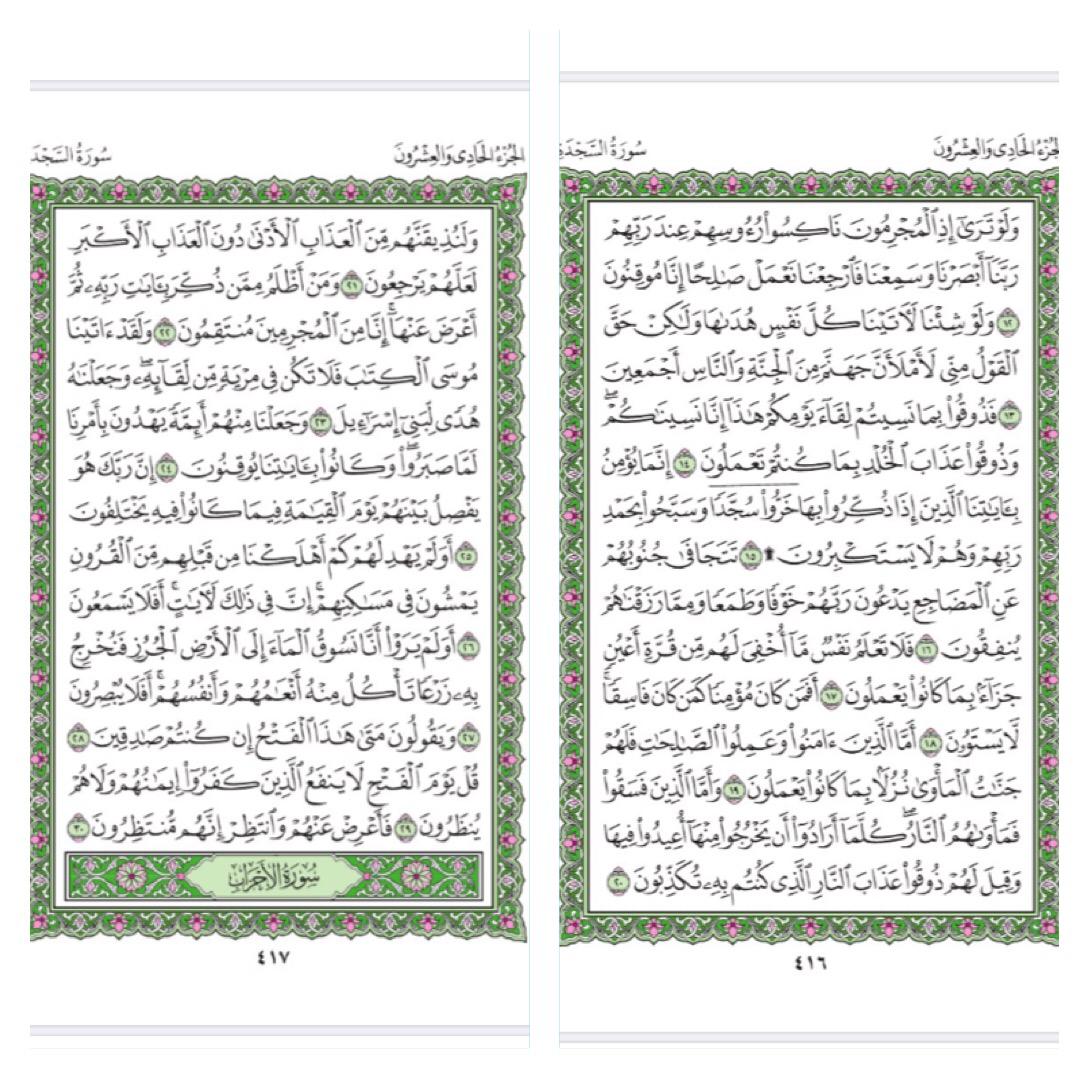 الجُزْءُ الحَادِى وَالعِشْرُونَ سُورَةُ السَّجْدَةِ
وَلَوْ تَرَىٰٓ إِذِ ٱلْمُجْرِمُونَ نَاكِسُوا۟ رُءُوسِهِمْ عِندَ رَبِّهِمْ
رَبَّنَآ أَبْصَرْنَا وَسَمِعْنَا فَٱرْجِعْنَا نَعْمَلْ صَٰلِحًا إِنَّا مُوقِنُونَ
١٢ وَلَوْ شِئْنَا لَءَاتَيْنَا كُلَّ نَفْسٍ هُدَىٰهَا وَلَٰكِنْ حَقَّ
ٱلْقَوْلُ مِنِّى لَأَمْلَأَنَّ جَهَنَّمَ مِنَ ٱلْجِنَّةِ وَٱلنَّاسِ أَجْمَعِينَ
١٣ فَذُوقُوا۟ بِمَا نَسِيتُمْ لِقَآءَ يَوْمِكُمْ هَٰذَآ إِنَّا نَسِينَٰكُمْ ۖ
وَذُوقُوا۟ عَذَابَ ٱلْخُلْدِ بِمَا كُنتُمْ تَعْمَلُونَ ١٤ إِنَّمَا يُؤْمِنُ
بِـَٔايَٰتِنَا ٱلَّذِينَ إِذَا ذُكِّرُوا۟ بِهَا خَرُّوا۟ سُجَّدًا وَسَبَّحُوا۟ بِحَمْدِ
رَبِّهِمْ وَهُمْ لَا يَسْتَكْبِرُونَ ١٥ تَتَجَافَىٰ جُنُوبُهُمْ
عَنِ ٱلْمَضَاجِعِ يَدْعُونَ رَبَّهُمْ خَوْفًا وَطَمَعًا وَمِمَّا رَزَقْنَٰهُمْ
يُنفِقُونَ ١٦ فَلَا تَعْلَمُ نَفْسٌ مَّآ أُخْفِىَ لَهُم مِّن قُرَّةِ أَعْيُنٍ
جَزَآءًۢ بِمَا كَانُوا۟ يَعْمَلُونَ ١٧ أَفَمَن كَانَ مُؤْمِنًا كَمَن كَانَ فَاسِقًا ۚ
لَّا يَسْتَوُۥنَ ١٨ أَمَّا ٱلَّذِينَ ءَامَنُوا۟ وَعَمِلُوا۟ ٱلصَّٰلِحَٰتِ فَلَهُمْ
جَنَّٰتُ ٱلْمَأْوَىٰ نُزُلًۢا بِمَا كَانُوا۟ يَعْمَلُونَ ١٩ وَأَمَّا ٱلَّذِينَ فَسَقُوا۟
فَمَأْوَىٰهُمُ ٱلنَّارُ ۖ كُلَّمَآ أَرَادُوٓا۟ أَن يَخْرُجُوا۟ مِنْهَآ أُعِيدُوا۟ فِيهَا
وَقِيلَ لَهُمْ ذُوقُوا۟ عَذَابَ ٱلنَّارِ ٱلَّذِى كُنتُم بِهِۦ تُكَذِّبُونَ ٢٠
٤١٦
الجُزْءُ الحَادِى وَالعِشْرُونَ سُورَةُ السَّجْدَ
وَلَنُذِيقَنَّهُم مِّنَ ٱلْعَذَابِ ٱلْأَدْنَىٰ دُونَ ٱلْعَذَابِ ٱلْأَكْبَرِ
لَعَلَّهُمْ يَرْجِعُونَ ٢١ وَمَنْ أَظْلَمُ مِمَّن ذُكِّرَ بِـَٔايَٰتِ رَبِّهِۦ ثُمَّ
أَعْرَضَ عَنْهَآ ۚ إِنَّا مِنَ ٱلْمُجْرِمِينَ مُنتَقِمُونَ ٢٢ وَلَقَدْ ءَاتَيْنَا
مُوسَى ٱلْكِتَٰبَ فَلَا تَكُن فِى مِرْيَةٍ مِّن لِّقَآئِهِۦ ۖ وَجَعَلْنَٰهُ
هُدًى لِّبَنِىٓ إِسْرَٰٓءِيلَ ٢٣ وَجَعَلْنَا مِنْهُمْ أَئِمَّةً يَهْدُونَ بِأَمْرِنَا
لَمَّا صَبَرُوا۟ ۖ وَكَانُوا۟ بِـَٔايَٰتِنَا يُوقِنُونَ ٢٤ إِنَّ رَبَّكَ هُوَ
يَفْصِلُ بَيْنَهُمْ يَوْمَ ٱلْقِيَٰمَةِ فِيمَا كَانُوا۟ فِيهِ يَخْتَلِفُونَ
٢٥ أَوَلَمْ يَهْدِ لَهُمْ كَمْ أَهْلَكْنَا مِن قَبْلِهِم مِّنَ ٱلْقُرُونِ
يَمْشُونَ فِى مَسَٰكِنِهِمْ ۚ إِنَّ فِى ذَٰلِكَ لَءَايَٰتٍ ۖ أَفَلَا يَسْمَعُونَ
٢٦ أَوَلَمْ يَرَوْا۟ أَنَّا نَسُوقُ ٱلْمَآءَ إِلَى ٱلْأَرْضِ ٱلْجُرُزِ فَنُخْرِجُ
بِهِۦ زَرْعًا تَأْكُلُ مِنْهُ أَنْعَٰمُهُمْ وَأَنفُسُهُمْ ۖ أَفَلَا يُبْصِرُونَ
٢٧ وَيَقُولُونَ مَتَىٰ هَٰذَا ٱلْفَتْحُ إِن كُنتُمْ صَٰدِقِينَ ٢٨
قُلْ يَوْمَ ٱلْفَتْحِ لَا يَنفَعُ ٱلَّذِينَ كَفَرُوٓا۟ إِيمَٰنُهُمْ وَلَا هُمْ
يُنظَرُونَ ٢٩ فَأَعْرِضْ عَنْهُمْ وَٱنتَظِرْ إِنَّهُم مُّنتَظِرُونَ ٣٠
سُورَةُ الأَحْزَابِ
٤١٧